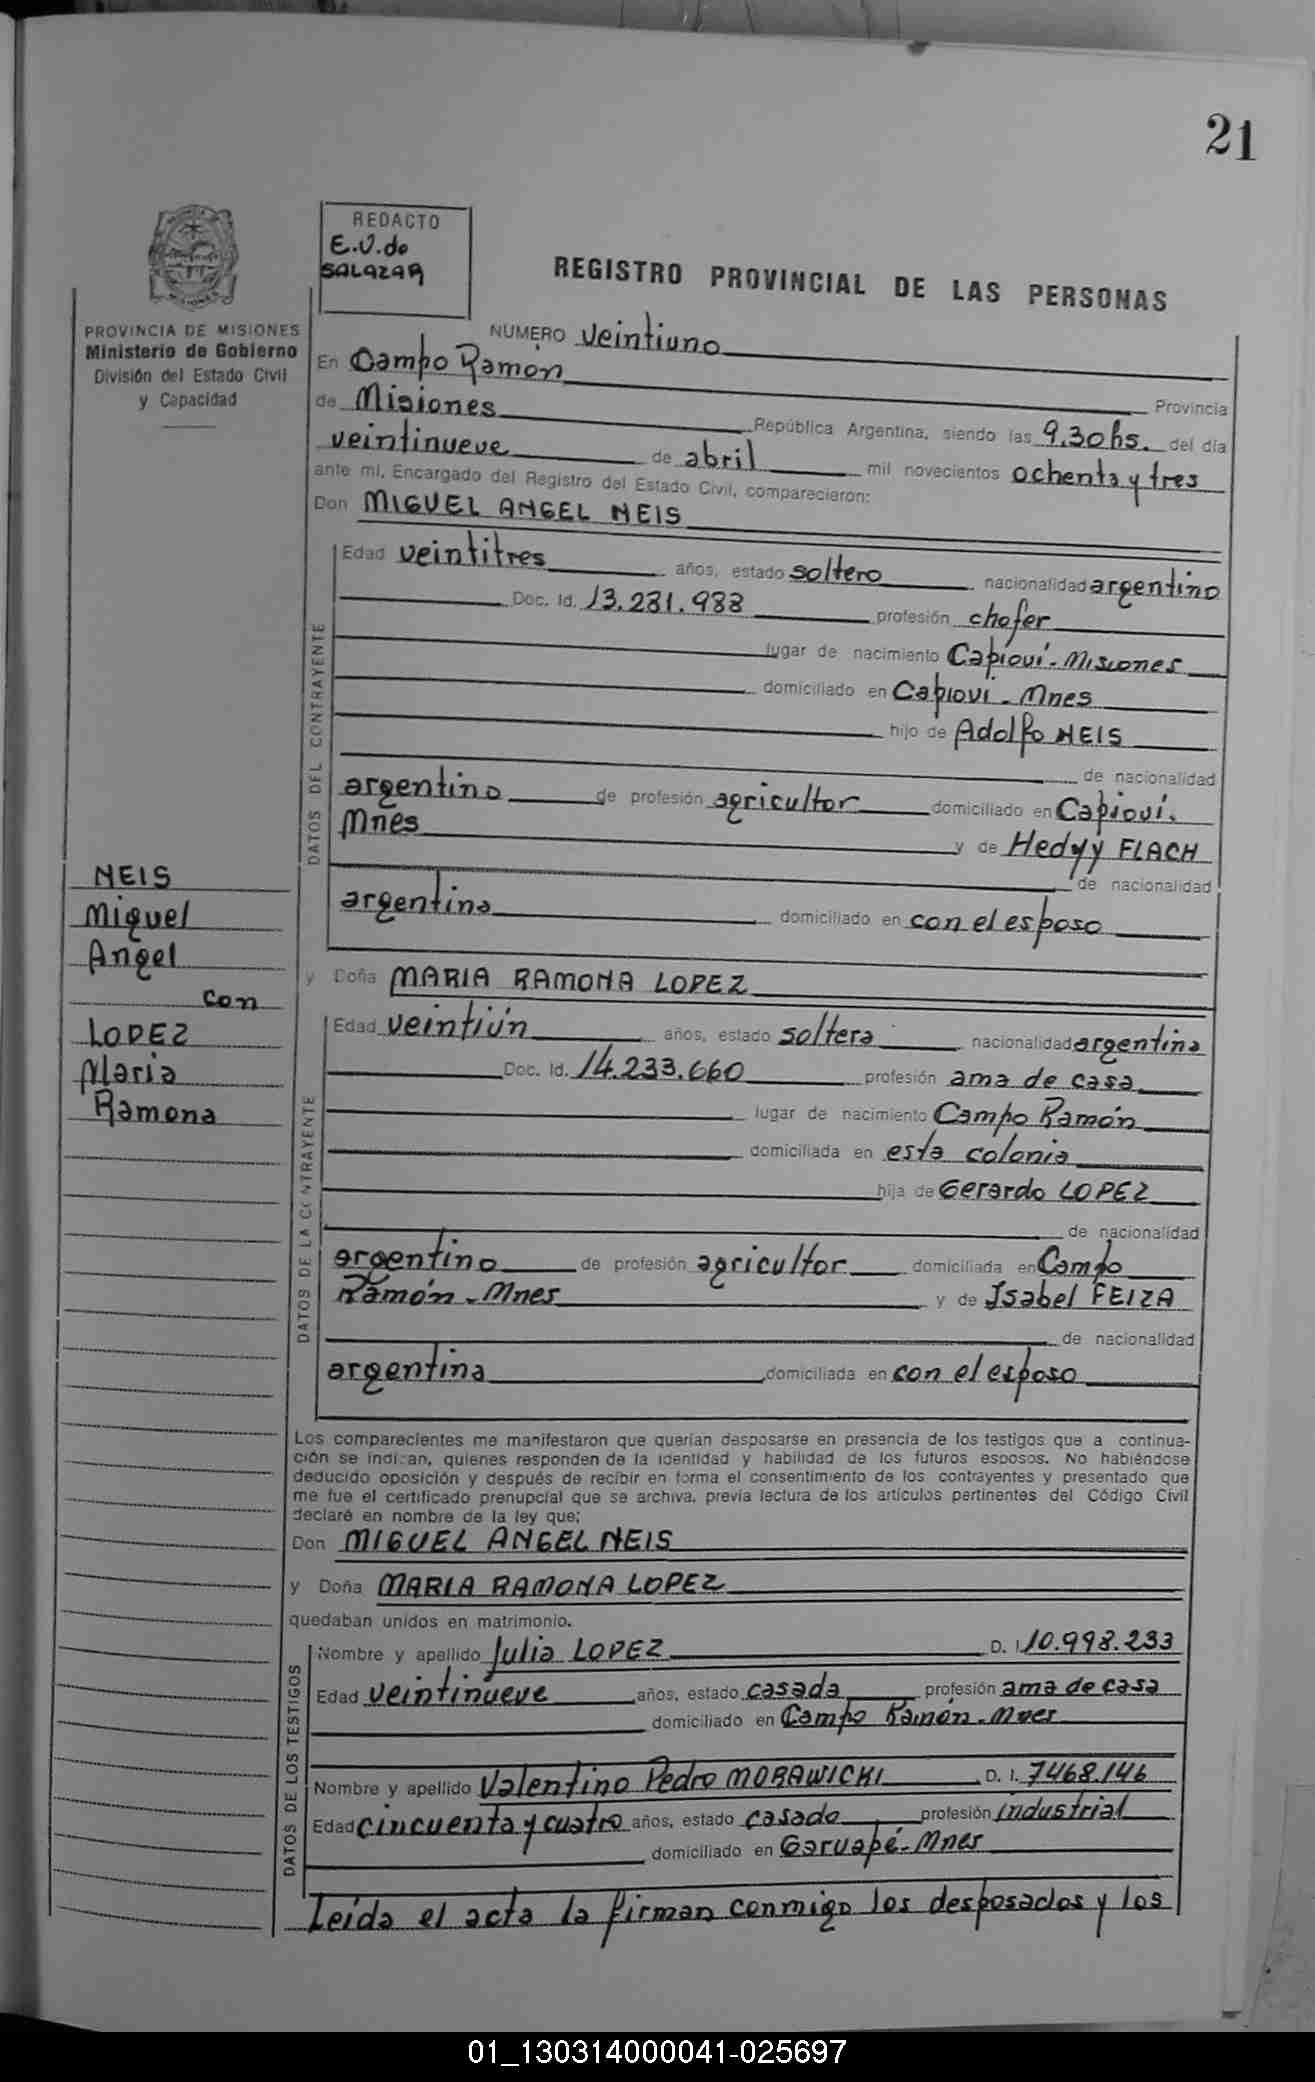 21
REDACTO
E.V. de
SALAZAR
PROVINCIA DE MISIONES
Ministerio de Gobierno
División del Estado Civil
y Capacidad
REGISTRO PROVINCIAL DE LAS PERSONAS
NUMERO veintiuno
En Campo Ramón Provincia
de Misiones República Argentina, siendo las 9,30 hs. del día
veintinueve de abril mil novecientos ochenta y tres
ante mí, Encargado del Registro del Estado Civil, comparecieron:
Don MIGUEL ANGEL NEIS
DATOS DEL CONTRAYENTE
Edad veintitres años, estado soltero nacionalidad argentino
Doc. Id. 13.281.988 profesión chofer
lugar de nacimiento Capioví - Misiones
domiciliado en Capiovi - Mnes
hijo de Adolfo NEIS
de nacionalidad
argentino de profesión agricultor domiciliado en Capioví.
Mnes y de Hedyy FLACH
de nacionalidad
argentina domiciliado en con el esposo
NEIS
Miguel
Angel
con
LOPEZ
Maria
Ramona
y Doña MARIA RAMONA LOPEZ
DATOS DE LA CONTRAYENTE
Edad veintiún años, estado soltera nacionalidad argentina
Doc. Id. 14.233.660 profesión ama de casa
lugar de nacimiento Campo Ramón
domiciliada en esta colonia
hija de Gerardo LOPEZ
de nacionalidad
argentino de profesión agricultor domiciliada en Campo
Ramón - Mnes y de Isabel FEIZA
de nacionalidad
argentina domiciliada en con el esposo
Los comparecientes me manifestaron que querían desposarse en presencia de los testigos que a continua-
ción se indican, quienes responden de la identidad y habilidad de los futuros esposos. No habiéndose
deducido oposición y después de recibir en forma el consentimiento de los contrayentes y presentado que
me fue el certificado prenupcial que se archiva, previa lectura de los artículos pertinentes del Código Civil
declaré en nombre de la ley que;
Don MIGUEL ANGEL NEIS
y Doña MARIA RAMONA LOPEZ
quedaban unidos en matrimonio.
DATOS DE LOS TESTIGOS
Nombre y apellido Julia LOPEZ D. I. 10.998.233
Edad veintinueve años, estado casada profesión ama de casa
domiciliado en Campo Ramón - Mnes
Nombre y apellido Valentino Pedro MORAWICKI D. I. 7468.146
Edad cincuenta y cuatro años, estado casado profesión industrial
domiciliado en Garuapé - Mnes
Leída el acta la firman conmigo los desposados y los
01_130314000041-025697